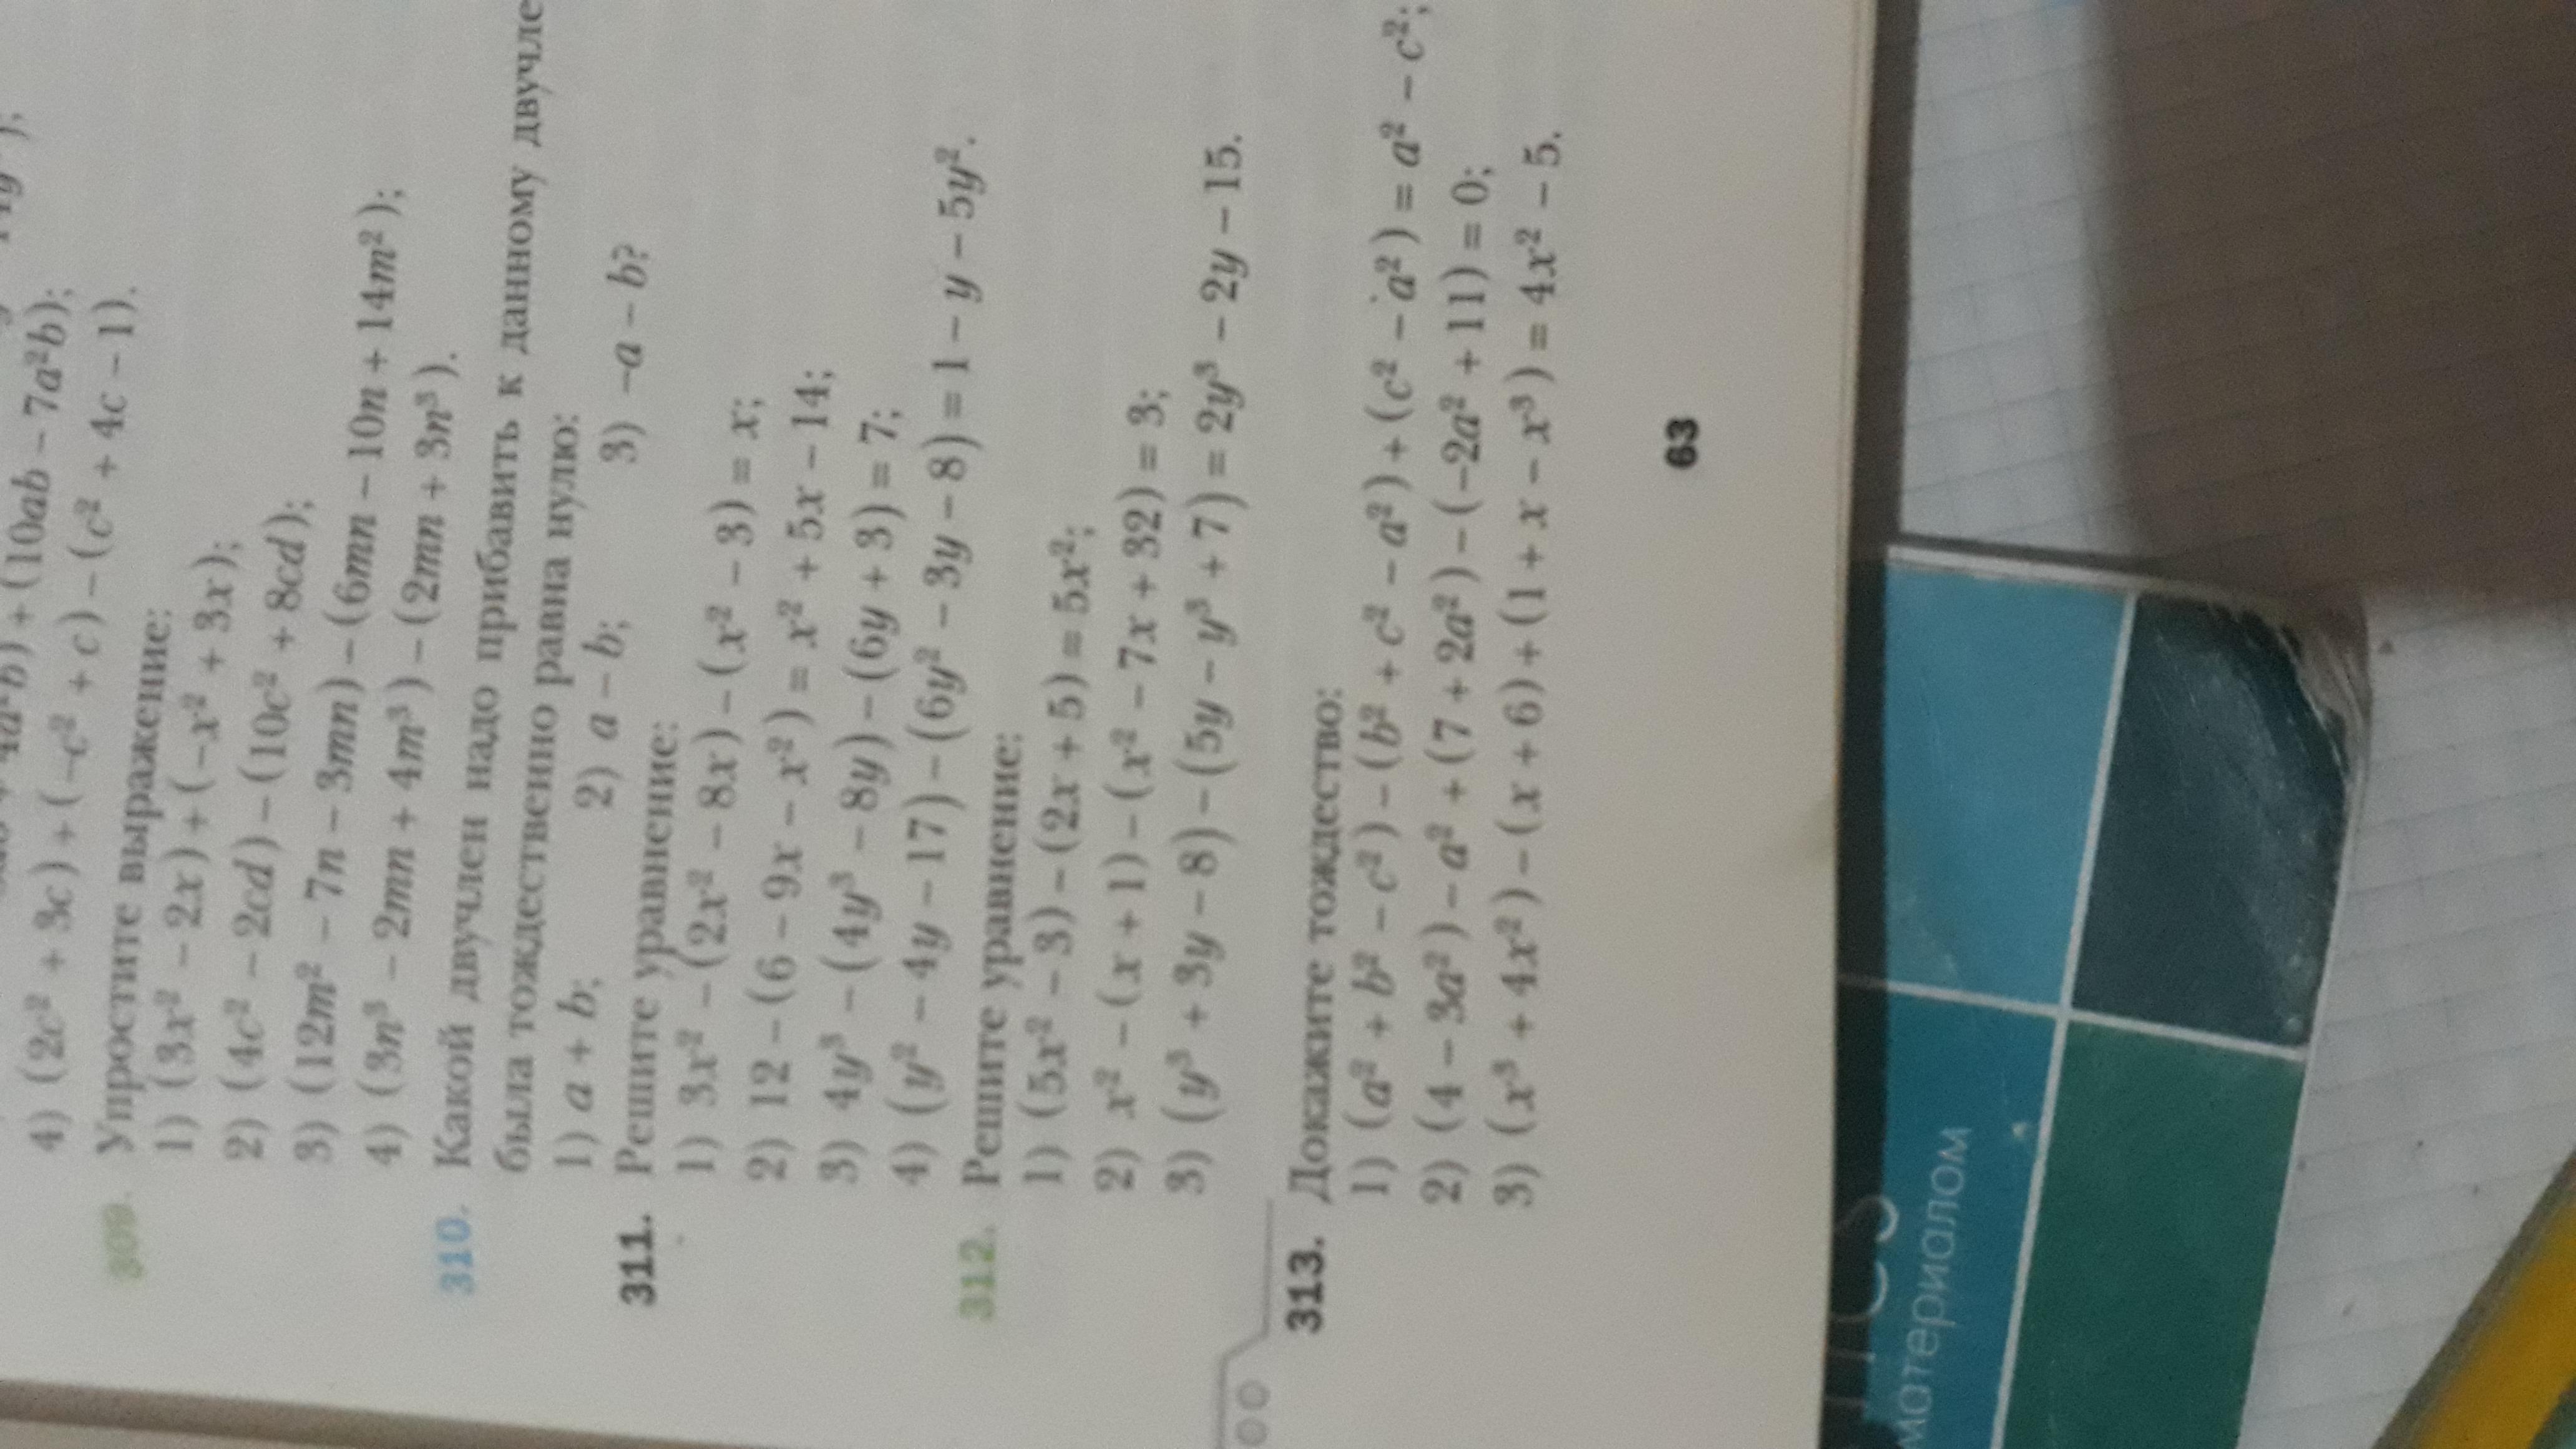 4) (2c² + 3c) + (–c² + c) – (c² + 4c – 1).
309. Упростите выражение:
1) (3x² – 2x) + (–x² + 3x);
2) (4c² – 2cd) – (10c² + 8cd);
3) (12m² – 7n – 3mn) – (6mn – 10n + 14m²);
4) (3n³ – 2mn + 4m³) – (2mn + 3n³).
310. Какой двучлен надо прибавить к данному
была тождественно равна нулю:
1) a + b; 2) a – b; 3) –a – b?
311. Решите уравнение:
1) 3x² – (2x² – 8x) – (x² – 3) = x;
2) 12 – (6 – 9x – x²) = x² + 5x – 14;
3) 4y³ – (4y³ – 8y) – (6y + 3) = 7;
4) (y² – 4y – 17) – (6y² – 3y – 8) = 1 – y – 5y².
312. Решите уравнение:
1) (5x² – 3) – (2x + 5) = 5x²;
2) x² – (x + 1) – (x² – 7x + 32) = 3;
3) (y³ + 3y – 8) – (5y – y³ + 7) = 2y³ – 2y – 15.
313. Докажите тождество:
1) (a² + b² – c²) – (b² + c² – a²) + (c² – a²) = a² – c²;
2) (4 – 3a²) – a² + (7 + 2a²) – (–2a² + 11) = 0;
3) (x³ + 4x²) – (x + 6) + (1 + x – x³) = 4x² – 5.
63
материалом